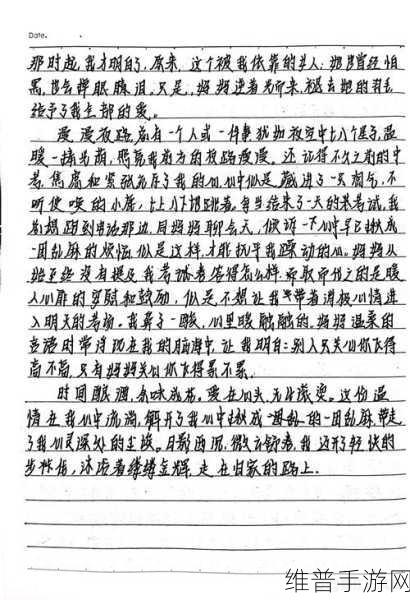 Date.
那时起,我才明白,原来,这个被我依靠的女人,她曾经怕
黑,也会掉眼泪,只是,妈妈逆着光而来,褪去她的羽毛
给予了我全部的爱。
漫漫夜路,总有一个人或一件事犹如夜空中的星
暖一捧光荫,照亮我前方的夜路漫漫。还记得不久之前的中
考,焦虑和紧张充斥了我的心,心中似是藏进了一只淘气、不
听使唤的小鹿,上上下下地跳着,每当结束了一天的考试,我
都想跑到妈妈那边,同妈妈聊会天,倾诉一下心中早已揪成
一团乱麻的烦恼,似是这样,才能抚平我躁动的心。妈妈从
始至终没有提及我考试考得怎么样,而取而代之的是暖
人心扉的宽慰和鼓励,似是不想让我带着消极心情进
入明天的考场。我鼻子一酸,心里暖融融的,妈妈温柔的
言语时常浮现在我的脑海中,让我明白:别人只关心你飞得
高不高,只有妈妈关心你飞得累不累。
时间酿酒,余味成花。爱在心头,无比滚烫。这份温
情在我心中流淌,解开了我心中揪成的一团乱麻,带走
了我心灵深处的尘埃。日影西沉,微云舒卷,我迈开轻快的
步伐,沐浴着缕缕金辉,走在归家的路上.
维普手游网